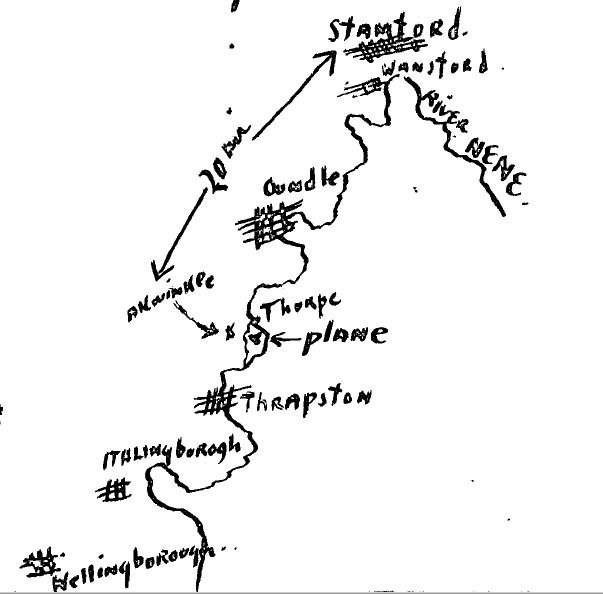 STAMFORD.
WANSFORD
RIVER NENE
20 km
Oundle
Aldwinkle
Thorpe
PLANE
THRAPSTON
ITHLINGboROUGH
Wellingborough